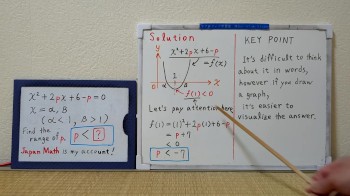 x²+2px+6-p=0
x=α, β
(α<1, β>1)
Find the
range of p.
p < ?
Japan Math is my account!
Solution
y
x²+2px+6-p
=f(x)
1
0
α
β
x
f(1)<0
Let's pay attention here
f(1)=(1)²+2p(1)+6-p
=p+7
<0
p < -7
KEY POINT
It's difficult to think
about it in words,
however if you draw
a graph,
it's easier to
visualize the answer.